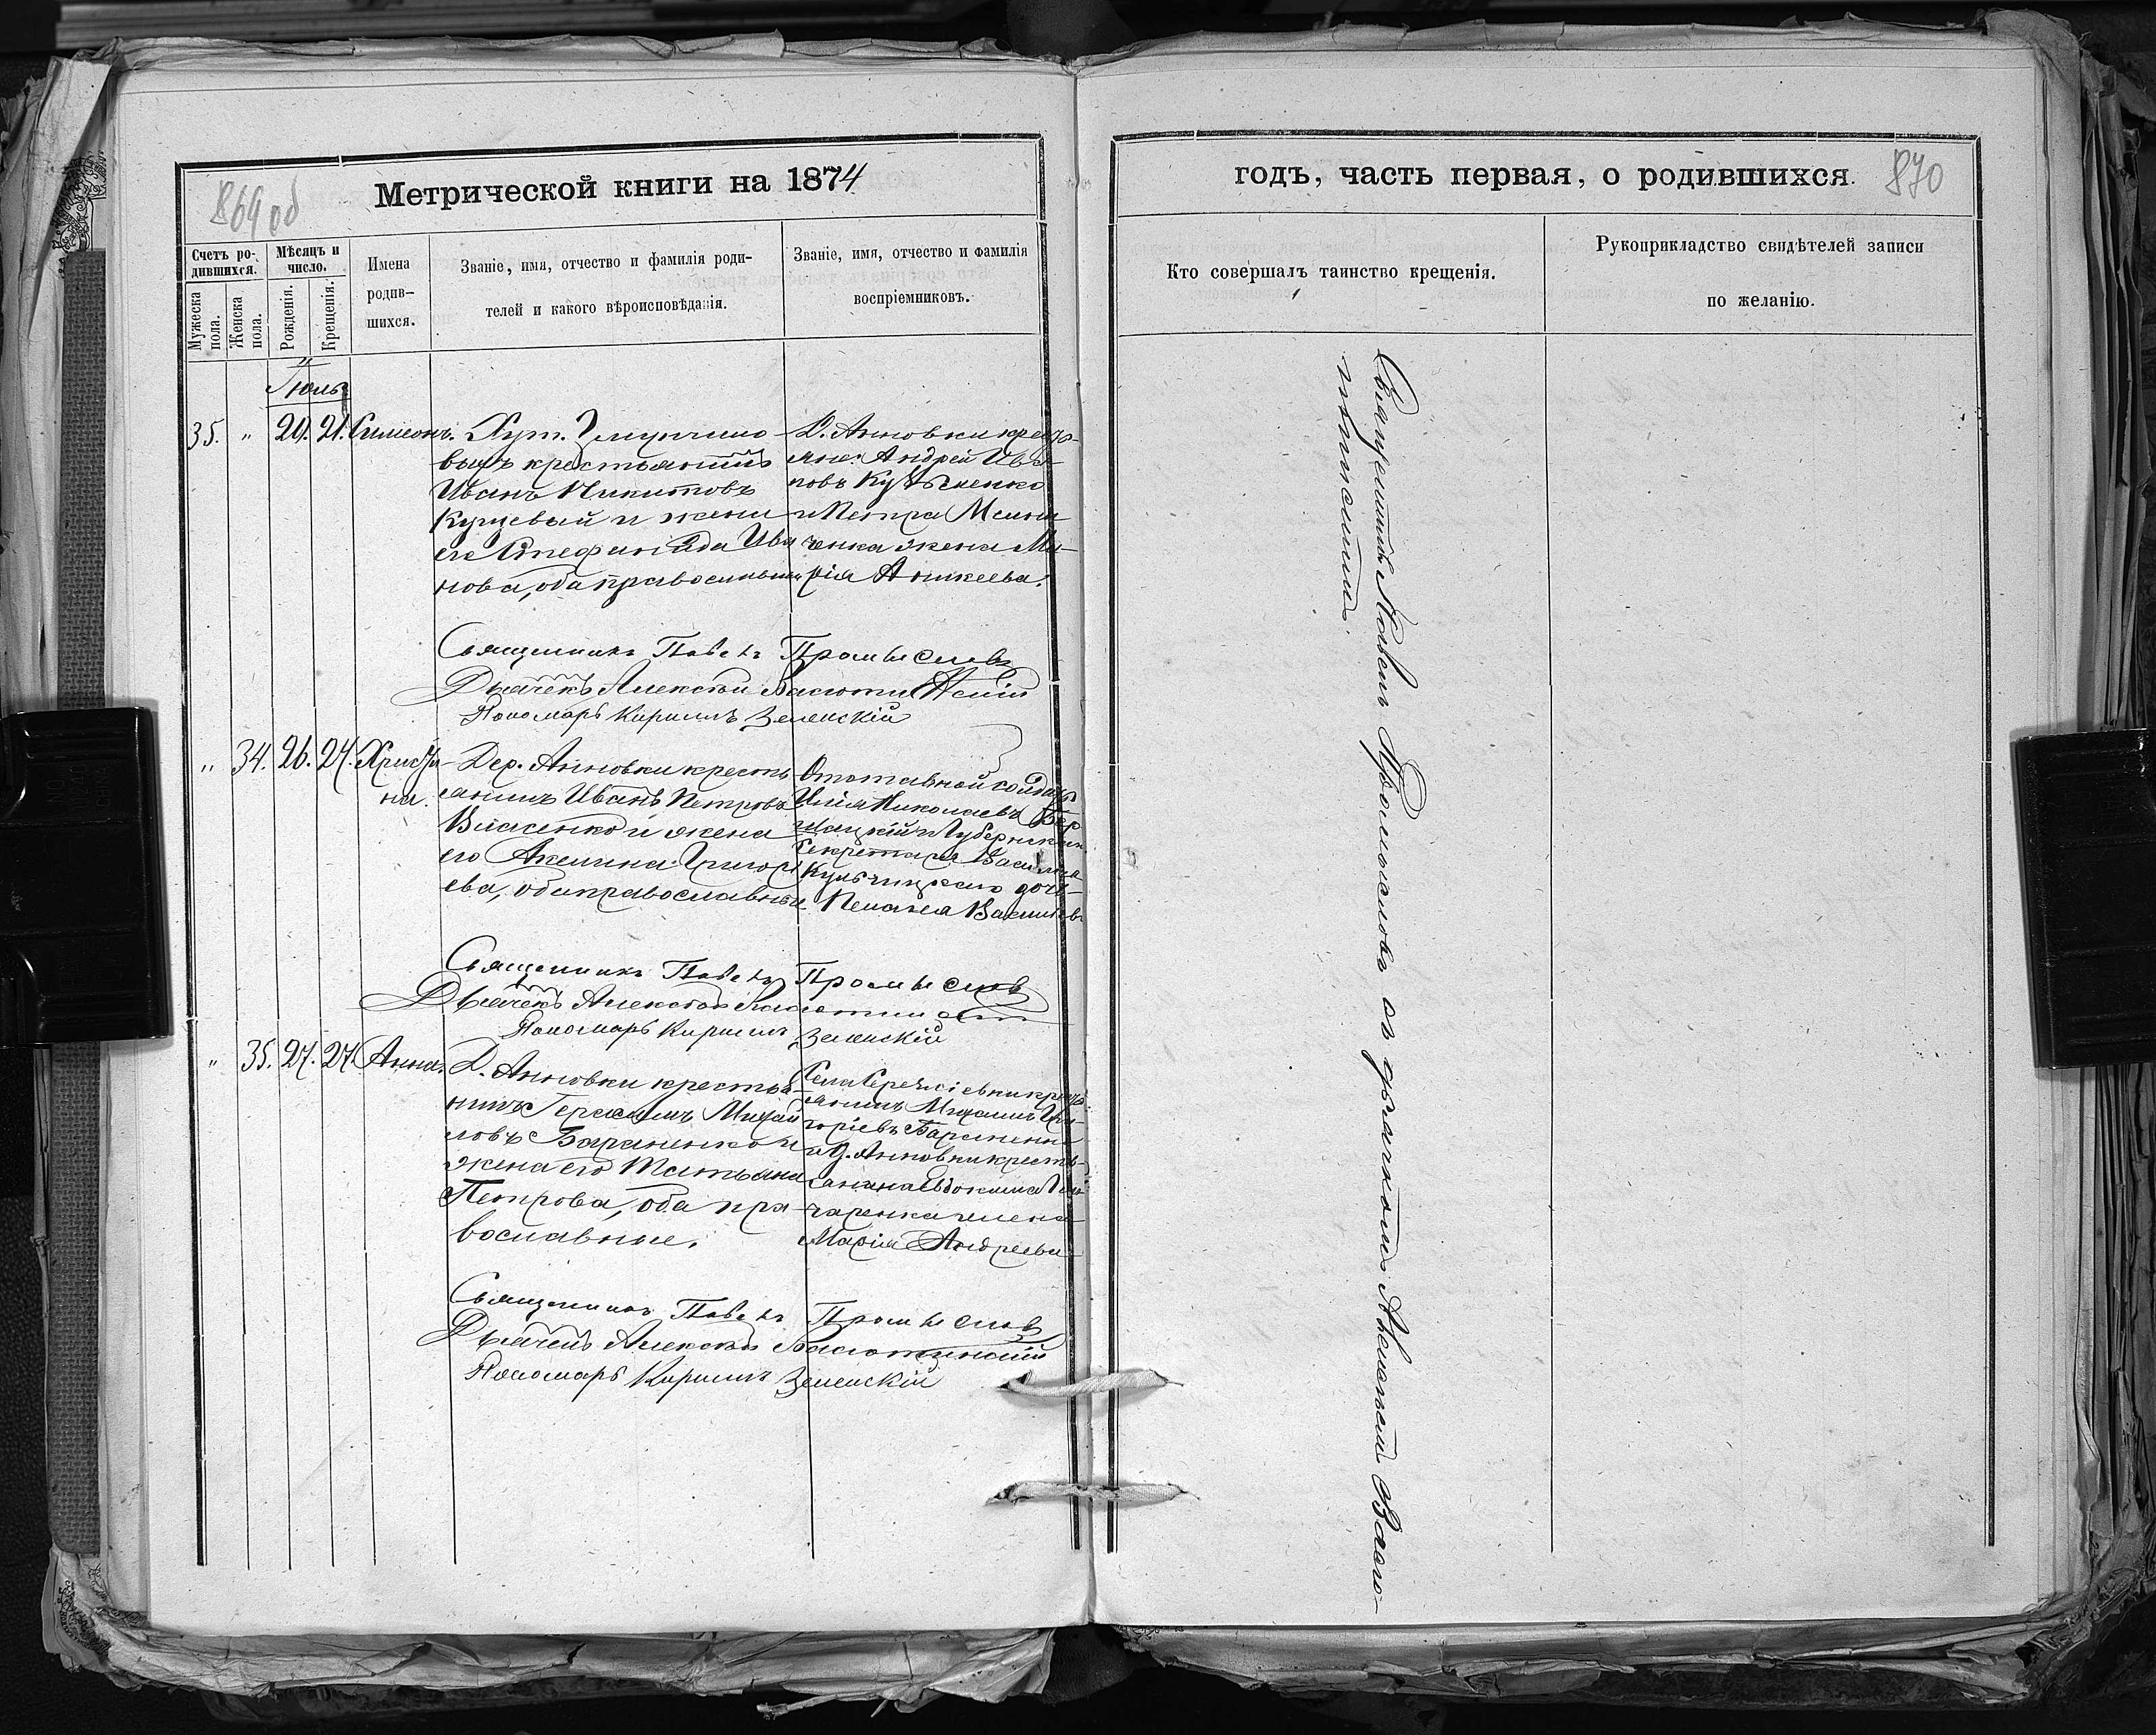 869 об
Метрической книги на 1874
Счетъ ро-
дившихся.
Мѣсяцъ и
число.
Имена
родив-
шихся.
Званіе, имя, отчество и фамилія роди-
телей и какого вѣроисповѣданія.
Званіе, имя, отчество и фамилія
воспріемниковъ.
Мужеска
пола.
Женска
пола.
Рожденія.
Крещенія.
Іюль
35. " 20. 21. Симеонъ.
Хут.
крестьянинъ
Иванъ Никитовъ
и жена
его Стефанида Ива
нова, оба православные
Д. Анновки кресть-
яне: Андрей Ива-
новъ
и Петра
ченка жена Ма-
рія Аникеева.
Священникъ Павелъ Промысловъ
Дьячекъ Алексѣй
Пономарь Кириллъ Зеленскій
" 34. 26. 27. Христи-
на.
Дер. Анновки кресть
янинъ Иванъ Петровъ
Власенко и жена
его Акилина Григорі
ева, оба православные
Отставной солдатъ
Илія Николаевъ
и Губернскаго
Секретаря Василія
Кульчицкаго дочь
Пелагея Васильев
Священникъ Павелъ Промысловъ
Дьячекъ Алексѣй
Пономарь Кириллъ Зеленскій
" 35. 27. 27. Анна.
Д. Анновки крестья-
нинъ Герасимъ Михай
ловъ Бараненко и
жена его Татьяна
Петрова, оба пра-
вославные.
Села Сергіевки кресть
янинъ Михаилъ Гри-
горіевъ Бараненко
и д. Анновки кресть-
янина Евдокима Гон
чаренка жена
Марія Андреева
Священникъ Павелъ Промысловъ
Дьячекъ Алексѣй
Пономарь Кириллъ Зеленскій
годъ, часть первая, о родившихся.
870
Кто совершалъ таинство крещенія.
Рукоприкладство свидѣтелей записи
по желанію.
Священникъ Павелъ Промысловъ съ дьячкомъ Алексѣемъ